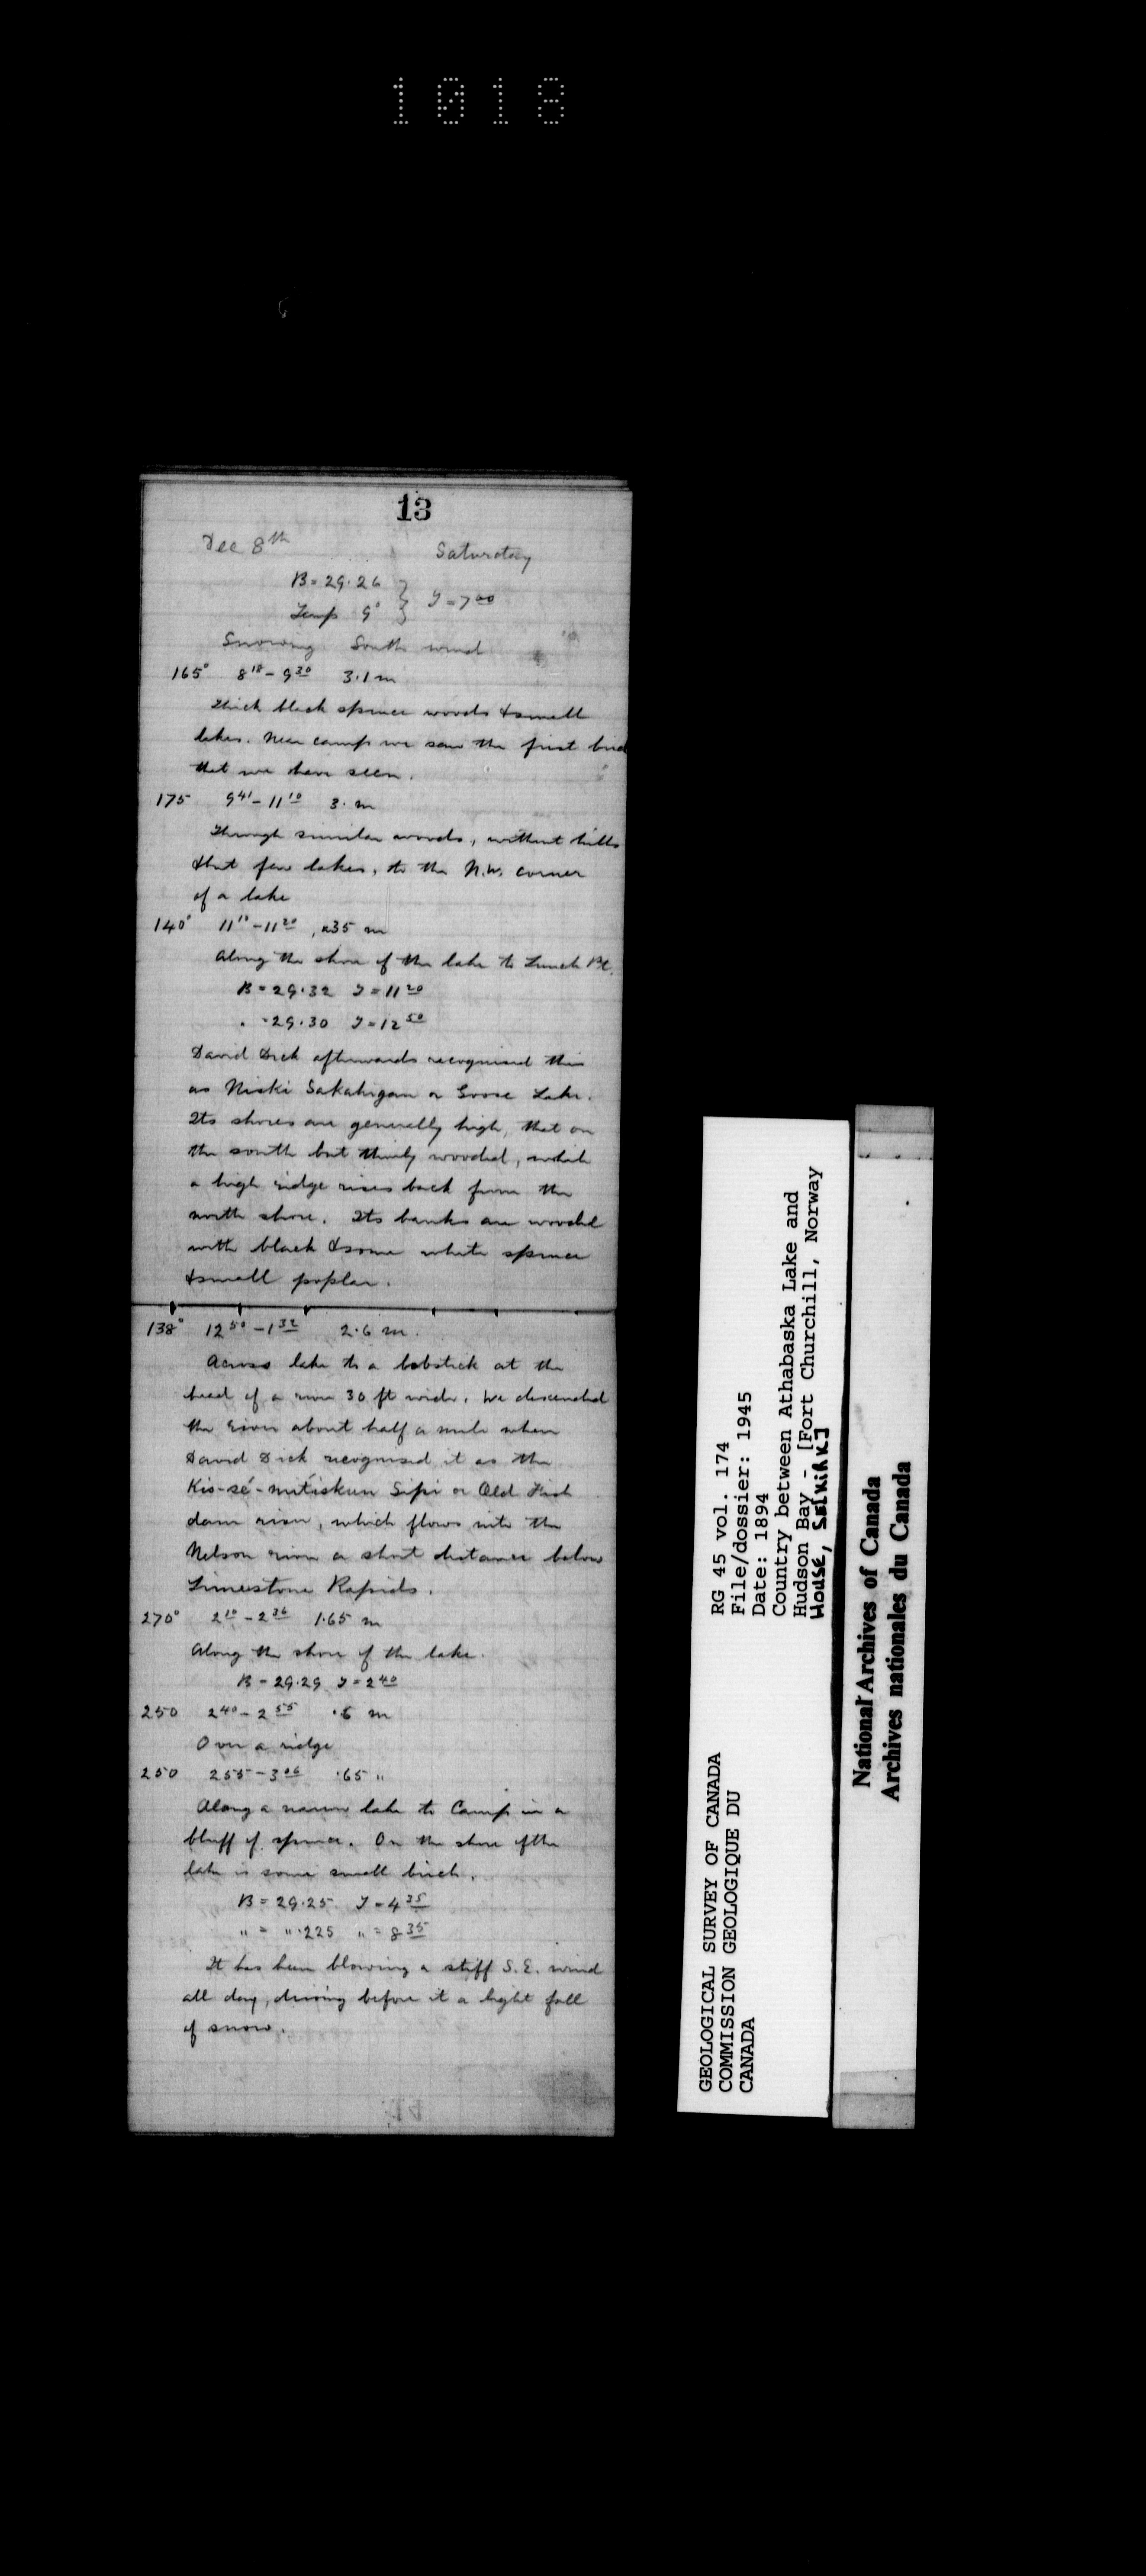 1018
13
Dec 8th Saturday
B = 29.26
Temp 9° } T = 7 00
Snowing South wind
165° 8 18 - 9 30 3.1 m
Thick black spruce woods & small
lakes. Near camp we saw the first
that we have seen.
175 9 41 - 11 10 3. m
Through similar woods, without hills
& but few lakes, to the N.W. corner
of a lake
140° 11 10 - 11 20 .35 m
Along the shore of the lake to Lunch Pt.
B = 29.32 T = 11 20
" = 29.30 T = 12 50
David Dick afterwards recognised this
as Niski Sakahigan or Goose Lake.
Its shores are generally high, that on
the south but thinly wooded, while
a high ridge rises back from the
north shore. Its banks are wooded
with black & some white spruce
& small poplar.
138° 12 50 - 1 32 2.6 m.
Across lake to a lobstick at the
head of a river 30 ft wide. We descended
the river about half a mile when
David Dick recognised it as the
Kis-sé-mitiskun Sipi or Old Fish
dam river, which flows into the
Nelson river a short distance below
Limestone Rapids.
270° 2 10 - 2 36 1.65 m
Along the shore of the lake.
B = 29.29 T = 2 40
250 2 40 - 2 55 m
Over a ridge
250 2 55 - 3 06 .65 "
Along a narrow lake to Camp in a
bluff of spruce. On the shore of the
lake is some small birch.
B = 29.25 T = 4 35
" = ".225 " = 8 35
It has been blowing a stiff S.E. wind
all day, driving before it a light fall
of snow.
GEOLOGICAL SURVEY OF CANADA
COMMISSION GEOLOGIQUE DU
CANADA
RG 45 vol. 174
File/dossier: 1945
Date: 1894
Country between Athabaska Lake and
Hudson Bay - [Fort Churchill, Norway
House, Selkirk]
National Archives of Canada
Archives nationales du Canada